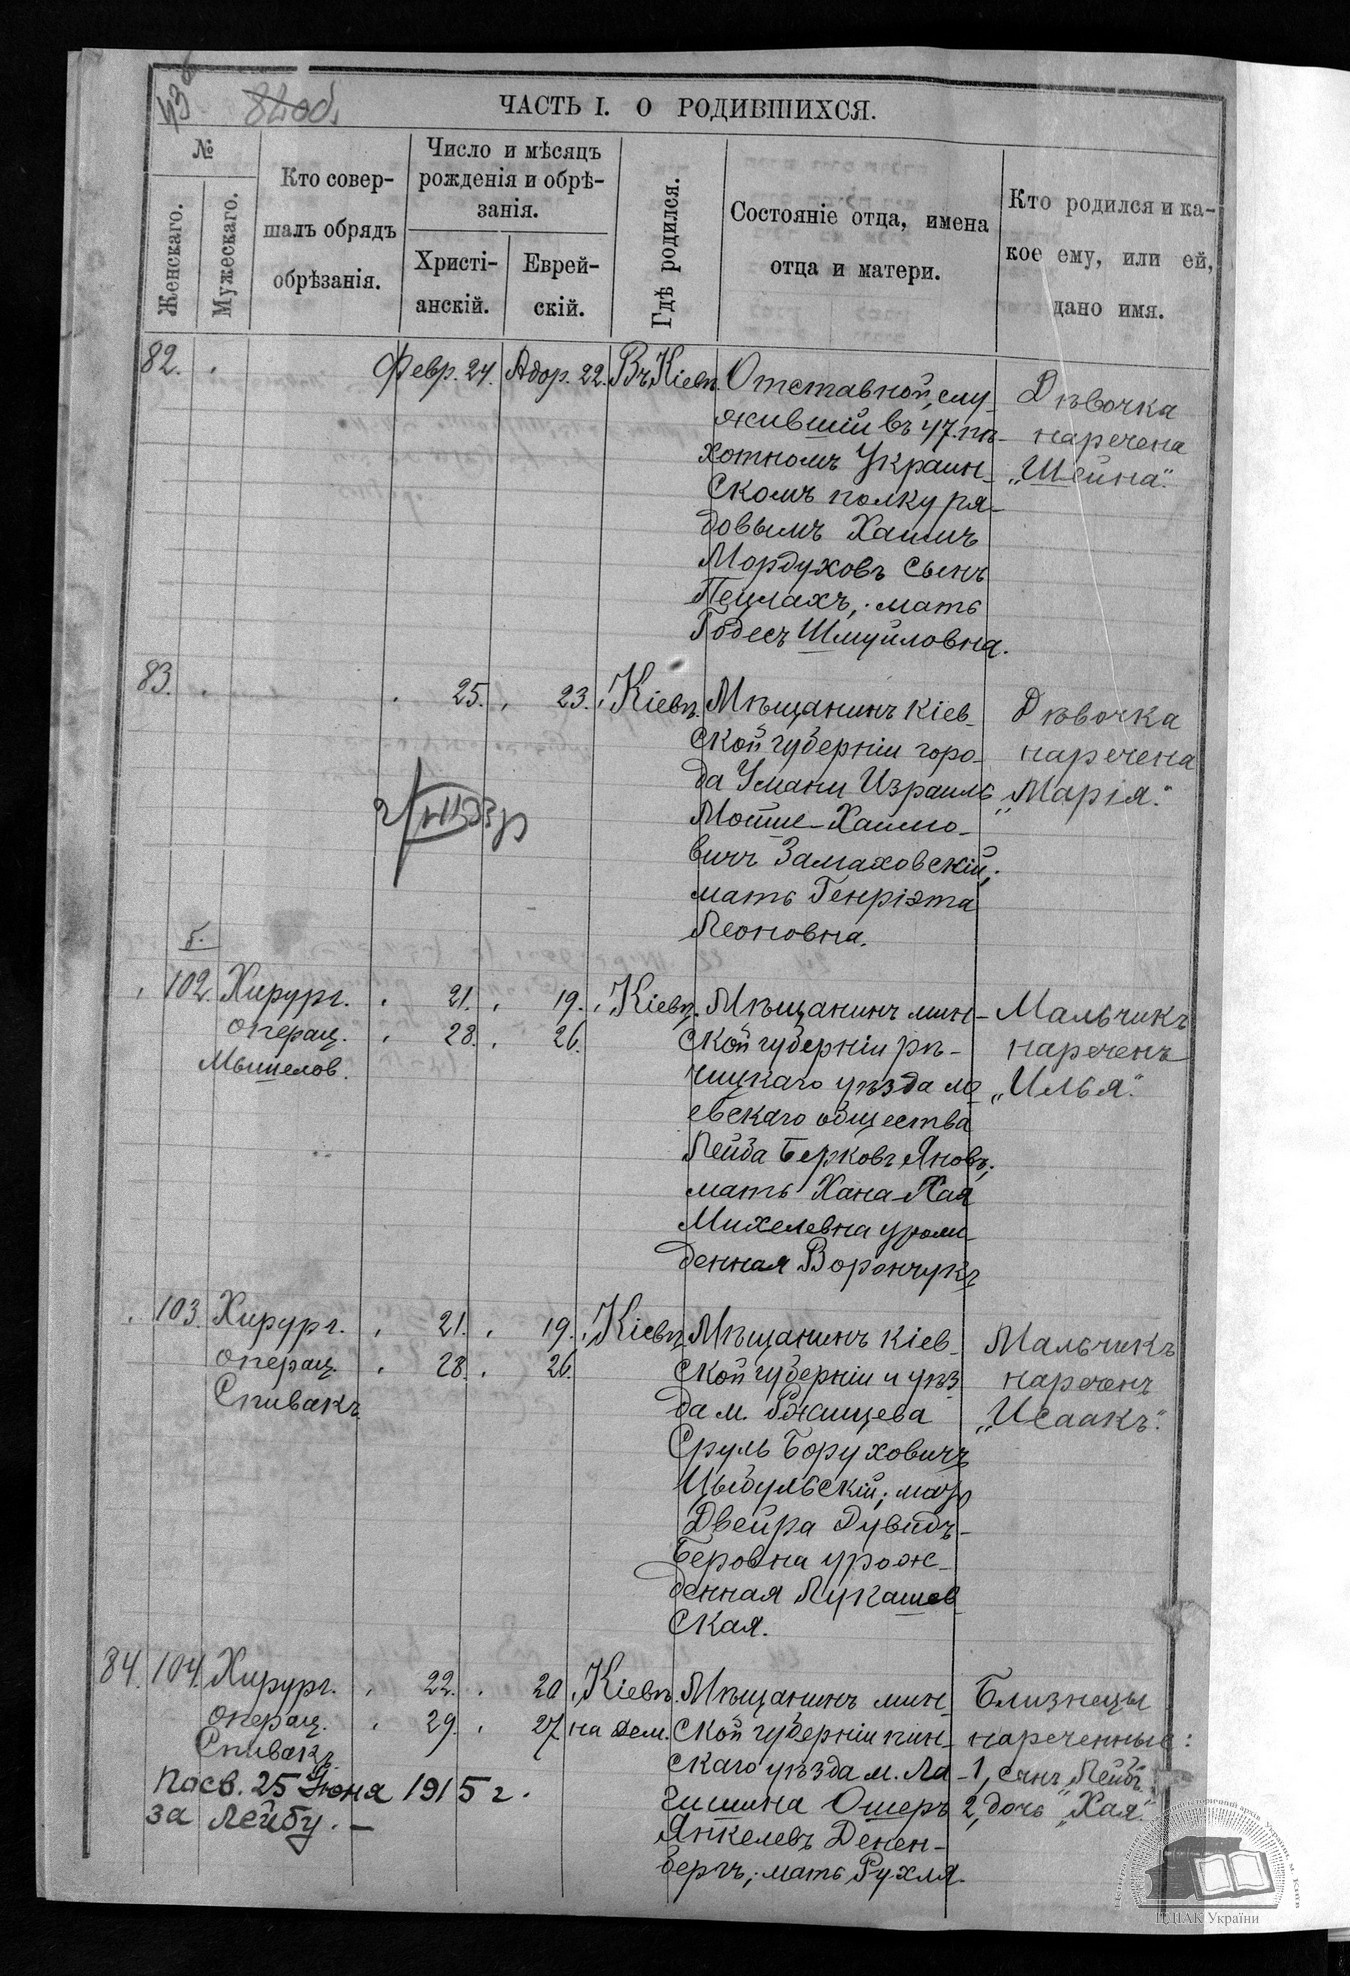 436 82об.
ЧАСТЬ I. О РОДИВШИХСЯ.
№
Женскаго.
Мужескаго.
Кто совер-
шалъ обрядъ
обрѣзанія.
Число и мѣсяцъ
рожденія и обрѣ-
занія.
Христі-
анскій.
Еврей-
скій.
Гдѣ родился.
Состояніе отца, имена
отца и матери.
Кто родился и ка-
кое ему, или ей,
дано имя.
82. Февр. 24. Адор. 22. Въ Кіевѣ.
Отставной, слу-
жившій въ 47. пѣ-
хотномъ Украин-
скомъ полку ря-
довымъ Хаимъ
Мордуховъ сынъ
Пецлахъ, мать
Годесъ Шмуйловна.
Дѣвочка
наречена
„Шейна".
83. 25. 23. Кіевѣ.
Мѣщанинъ Кіев-
ской губерніи горо-
да Умани Израиль
Мойше-Хаимо-
вичъ Замаховскій;
мать Генріэта
Леоновна.
Дѣвочка
наречена
„Марія".
102. Хирург. 21. 19. Кіевѣ.
операц. 28. 26.
Мышелов.
Мѣщанинъ мин-
ской губерніи рѣ-
чицкаго уѣзда ло
евскаго общества
Лейба Берковъ Яновъ;
мать Хана-Хая
Михелевна урож-
денная Ворончукъ
Мальчикъ
нареченъ
„Илья".
103. Хирург. 21. 19. Кіевѣ
операц. 28. 26.
Спивакъ
Мѣщанинъ Кіев-
ской губерніи и уѣз
да м. Ржищева
Сруль Борухович
Цыбульскій; мать
Двейра Дувидъ-
Беровна урож-
денная Лукашев
ская.
Мальчикъ
нареченъ
„Исаакъ".
84. 104. Хирург. 22. 20 Кіевѣ.
операц. 29. 27 на Дем.
Спивакъ
Мѣщанинъ мин-
ской губерніи пин-
скаго уѣзда м. Ло
гишина Ошеръ
Янкелевъ Денен-
бергъ; мать Рухля.
Близнецы
нареченные:
1, сынъ „Лейб"
2, дочь „Хая".
Посв. 25 Іюня 1915 г.
за Лейбу. —
ЦДІАК України